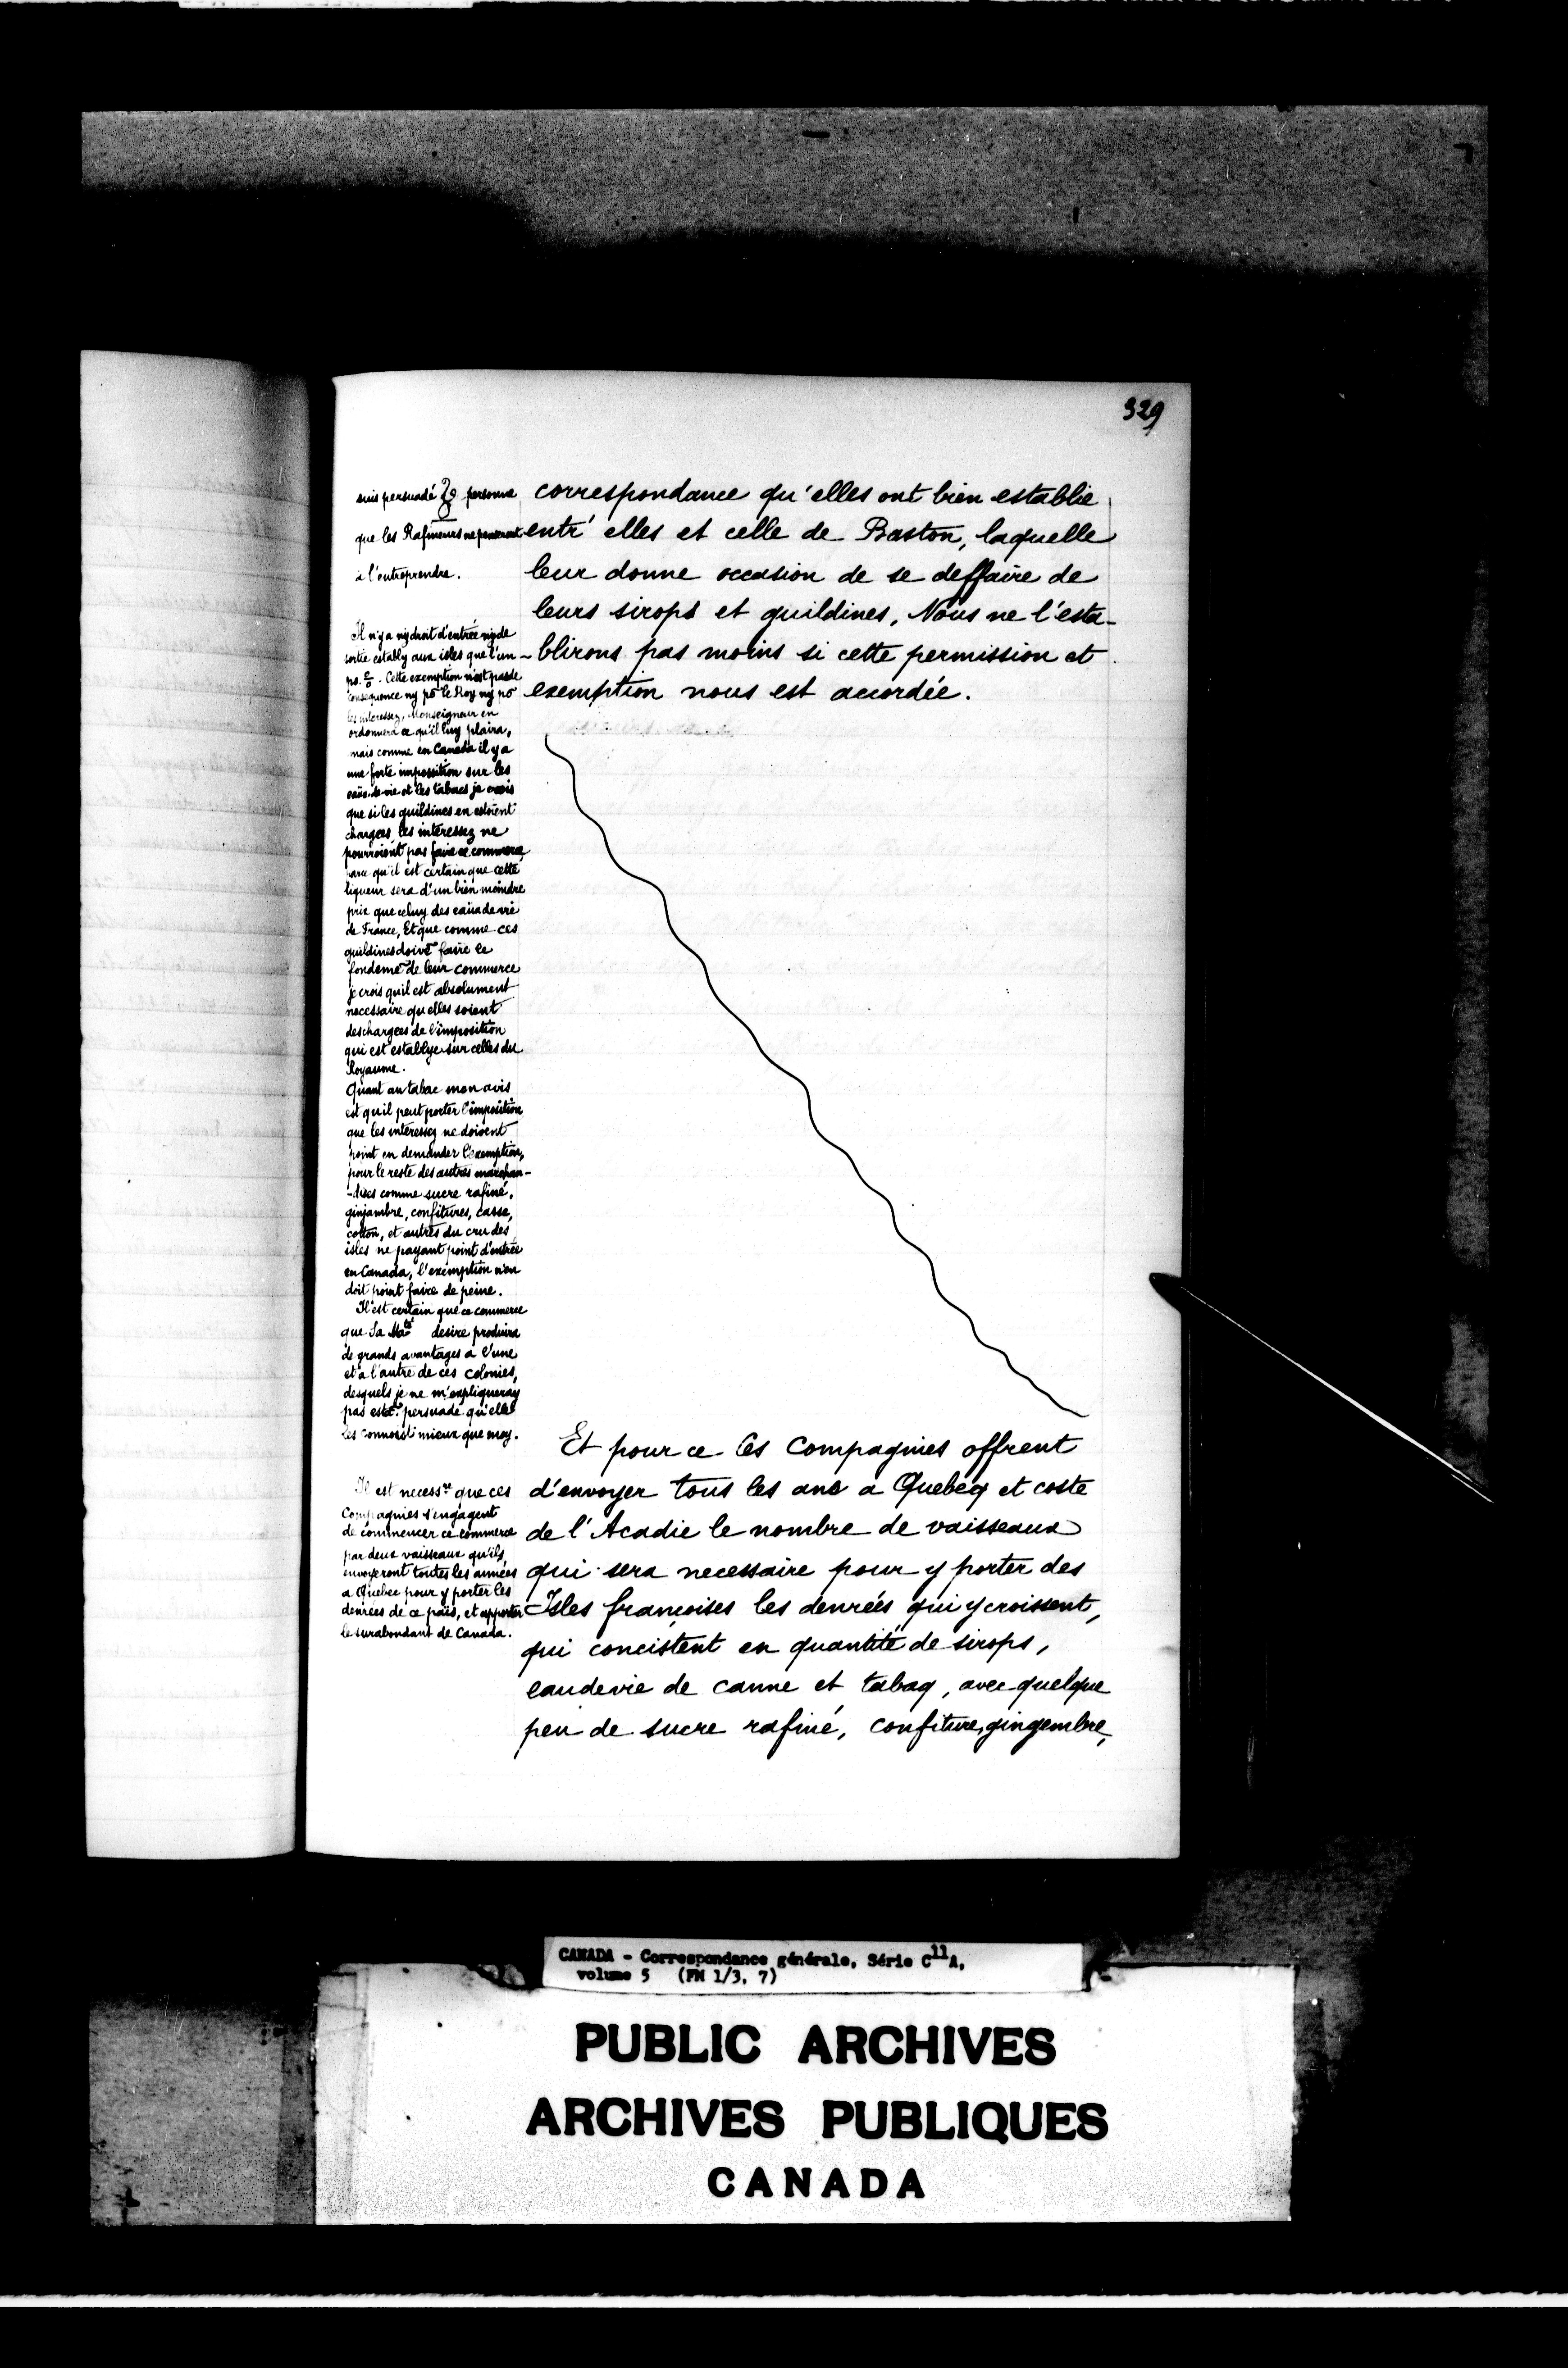 329
suis persuadé personne
que les Rafineurs ne penseront
à l'entreprendre.
Il n'y a ny droit d'entrée ny de
sortie estably aux isles que l'un
po. %. Cette exemption n'est pas de
consequence ny po le Roy ny po
les interessez, Monseigneur en
ordonnera ce qu'il luy plaira,
mais comme en Canada il y a
une forte imposition sur les
eaux-de-vie et les tabacs je crois
que si les guildines en estoient
chargées, les interessez ne
pourroient pas faire ce commerce,
parce qu'il est certain que cette
liqueur sera d'un bien moindre
prix que celuy des eaux de vie
de France, Et que comme ces
guildines doivt faire le
fondemt de leur commerce
je crois quil est absolument
necessaire quelles soient
deschargees de l'imposition
qui est establye sur celles du
Royaume.
Quant au tabac mon avis
est quil peut porter l'imposition
que les interessez ne doivent
point en demander l'exemption,
pour le reste des autres marchan-
-dises comme sucre rafiné,
ginjambre, confitures, casse,
cotton, et autres du cru des
isles ne payant point d'entrée
en Canada, l'exemption n'en
doit point faire de peine.
Il est certain que ce commerce
que Sa Maté desire produira
de grands avantages a l'une
et a l'autre de ces colonies,
desquels je ne m'expliqueray
pas estt persuadé qu'elle
les connoist mieux que moy.
Il est necessre que ces
Compagnies s'engagent
de commencer ce commerce
par deux vaisseaux qu'ils
envoyeront toutes les années
a Quebec pour y porter les
denrées de ce païs, et apporter
le surabondant de Canada.
correspondance qu'elles ont bien establie
entr' elles et celle de Baston, laquelle
leur donne occasion de se deffaire de
leurs sirops et guildines, Nous ne l'esta-
-blirons pas moins si cette permission et
exemption nous est accordée.
Et pour ce les Compagnies offrent
d'envoyer tous les ans a Quebeq et coste
de l'Acadie le nombre de vaisseaux
qui sera necessaire pour y porter des
Isles françoises les denrées qui y croissent,
qui concistent en quantité de sirops,
eaudevie de canne et tabaq, avec quelque
peu de sucre rafiné, confiture, gingembre,
CANADA - Correspondance générale, Série C11A,
volume 5 (FM 1/3, 7)
PUBLIC ARCHIVES
ARCHIVES PUBLIQUES
CANADA